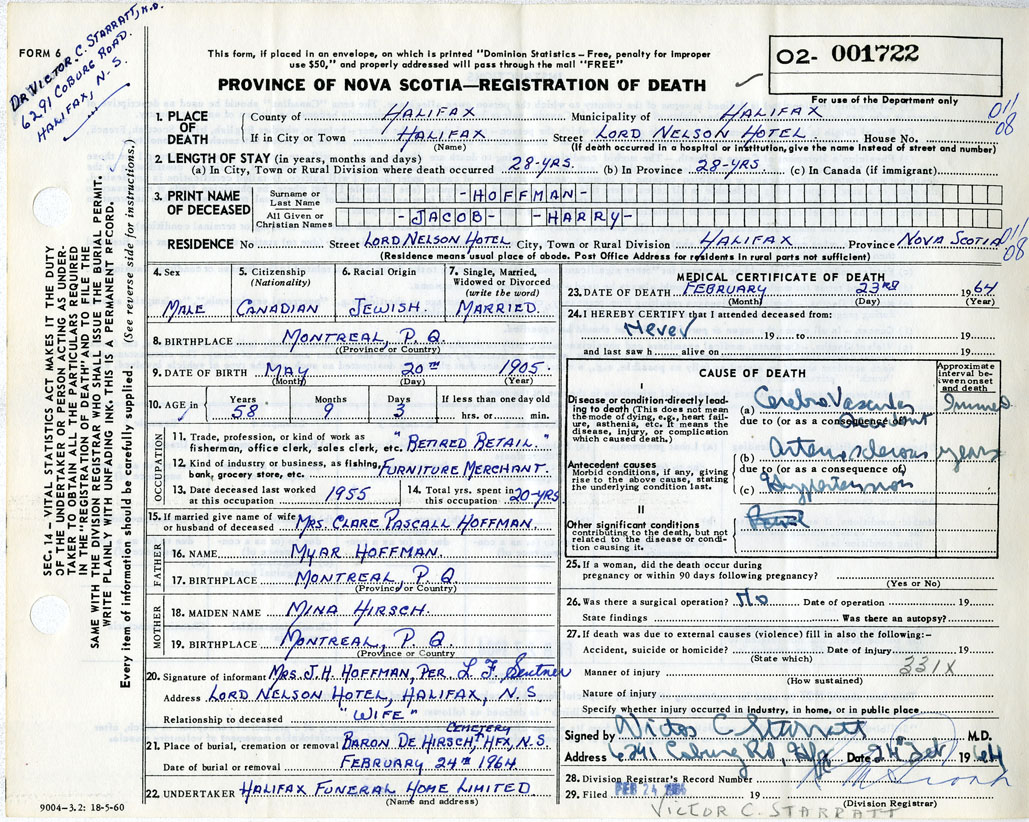 FORM 6
DR VICTOR. C. STARRATT, M.D.
6291 COBURG ROAD.
HALIFAX, N. S.
This form, if placed in an envelope, on which is printed "Dominion Statistics – Free, penalty for improper
use $50," and properly addressed will pass through the mail "FREE"
PROVINCE OF NOVA SCOTIA—REGISTRATION OF DEATH
02- 001722
For use of the Department only
011/08
1. PLACE OF DEATH County of HALIFAX Municipality of HALIFAX
If in City or Town HALIFAX Street LORD NELSON HOTEL House No.
(Name) (If death occurred in a hospital or institution, give the name instead of street and number)
2. LENGTH OF STAY (in years, months and days)
(a) In City, Town or Rural Division where death occurred 28-YRS. (b) In Province 28-YRS. (c) In Canada (if immigrant)
3. PRINT NAME OF DECEASED Surname or Last Name -HOFFMAN-
All Given or Christian Names -JACOB- -HARRY-
RESIDENCE No Street LORD NELSON HOTEL City, Town or Rural Division HALIFAX Province NOVA SCOTIA 011/08
(Residence means usual place of abode. Post Office Address for residents in rural parts not sufficient)
4. Sex MALE
5. Citizenship (Nationality) CANADIAN
6. Racial Origin JEWISH.
7. Single, Married, Widowed or Divorced (write the word) MARRIED.
8. BIRTHPLACE MONTREAL, P. Q.
(Province or Country)
9. DATE OF BIRTH MAY 20TH 1905.
(Month) (Day) (Year)
10. AGE in Years 58 Months 9 Days 3 If less than one day old hrs. or min.
OCCUPATION
11. Trade, profession, or kind of work as fisherman, office clerk, sales clerk, etc. "RETIRED RETAIL."
12. Kind of industry or business, as fishing, bank, grocery store, etc. FURNITURE MERCHANT.
13. Date deceased last worked at this occupation 1955
14. Total yrs. spent in this occupation 20-YRS
15. If married give name of wife or husband of deceased MRS. CLARE PASCALL HOFFMAN.
FATHER
16. NAME MYAR HOFFMAN.
17. BIRTHPLACE MONTREAL, P. Q
(Province or Country)
MOTHER
18. MAIDEN NAME MINA HIRSCH.
19. BIRTHPLACE MONTREAL, P. Q.
(Province or Country)
20. Signature of informant MRS. J. H. HOFFMAN, PER L. F. Sentner
Address LORD NELSON HOTEL, HALIFAX, N. S
Relationship to deceased "WIFE"
21. Place of burial, cremation or removal BARON DE HIRSCH, CEMETERY HFX, N.S.
Date of burial or removal FEBRUARY 24TH 1964.
22. UNDERTAKER HALIFAX FUNERAL HOME LIMITED.
(Name and address)
MEDICAL CERTIFICATE OF DEATH
23. DATE OF DEATH FEBRUARY 23RD 1964
(Month) (Day) (Year)
24. I HEREBY CERTIFY that I attended deceased from:
Never 19 to 19
and last saw h alive on 19
CAUSE OF DEATH
Approximate interval between onset and death
I
Disease or condition directly leading to death (This does not mean the mode of dying, e.g., heart failure, asthenia, etc. It means the disease, injury, or complication which caused death.)
(a) Cerebro Vascular Accident Immed
due to (or as a consequence of)
Antecedent causes
Morbid conditions, if any, giving rise to the above cause, stating the underlying condition last.
(b) Arteriosclerosis years
due to (or as a consequence of)
(c) Hypertension
II
Other significant conditions contributing to the death, but not related to the disease or condition causing it.
25. If a woman, did the death occur during pregnancy or within 90 days following pregnancy?
(Yes or No)
26. Was there a surgical operation? No Date of operation 19
State findings Was there an autopsy?
27. If death was due to external causes (violence) fill in also the following:—
Accident, suicide or homicide? Date of injury 19
(State which)
Manner of injury 331X
(How sustained)
Nature of injury
Specify whether injury occurred in industry, in home, or in public place
Signed by Victor C Starratt M.D.
Address 6291 Coburg Rd, Hfx Date 24th Feb 1964
28. Division Registrar's Record Number
29. Filed FEB 24 19
(Division Registrar)
VICTOR C. STARRATT
SEC. 14 – VITAL STATISTICS ACT MAKES IT THE DUTY
OF THE UNDERTAKER OR PERSON ACTING AS UNDER-
TAKER TO OBTAIN ALL THE PARTICULARS REQUIRED
IN THE "REGISTRATION OF DEATH" AND TO FILE THE
SAME WITH THE DIVISION REGISTRAR WHO SHALL ISSUE THE BURIAL PERMIT.
WRITE PLAINLY WITH UNFADING INK. THIS IS A PERMANENT RECORD.
Every item of information should be carefully supplied. (See reverse side for instructions.)
9004–3.2: 18-5-60